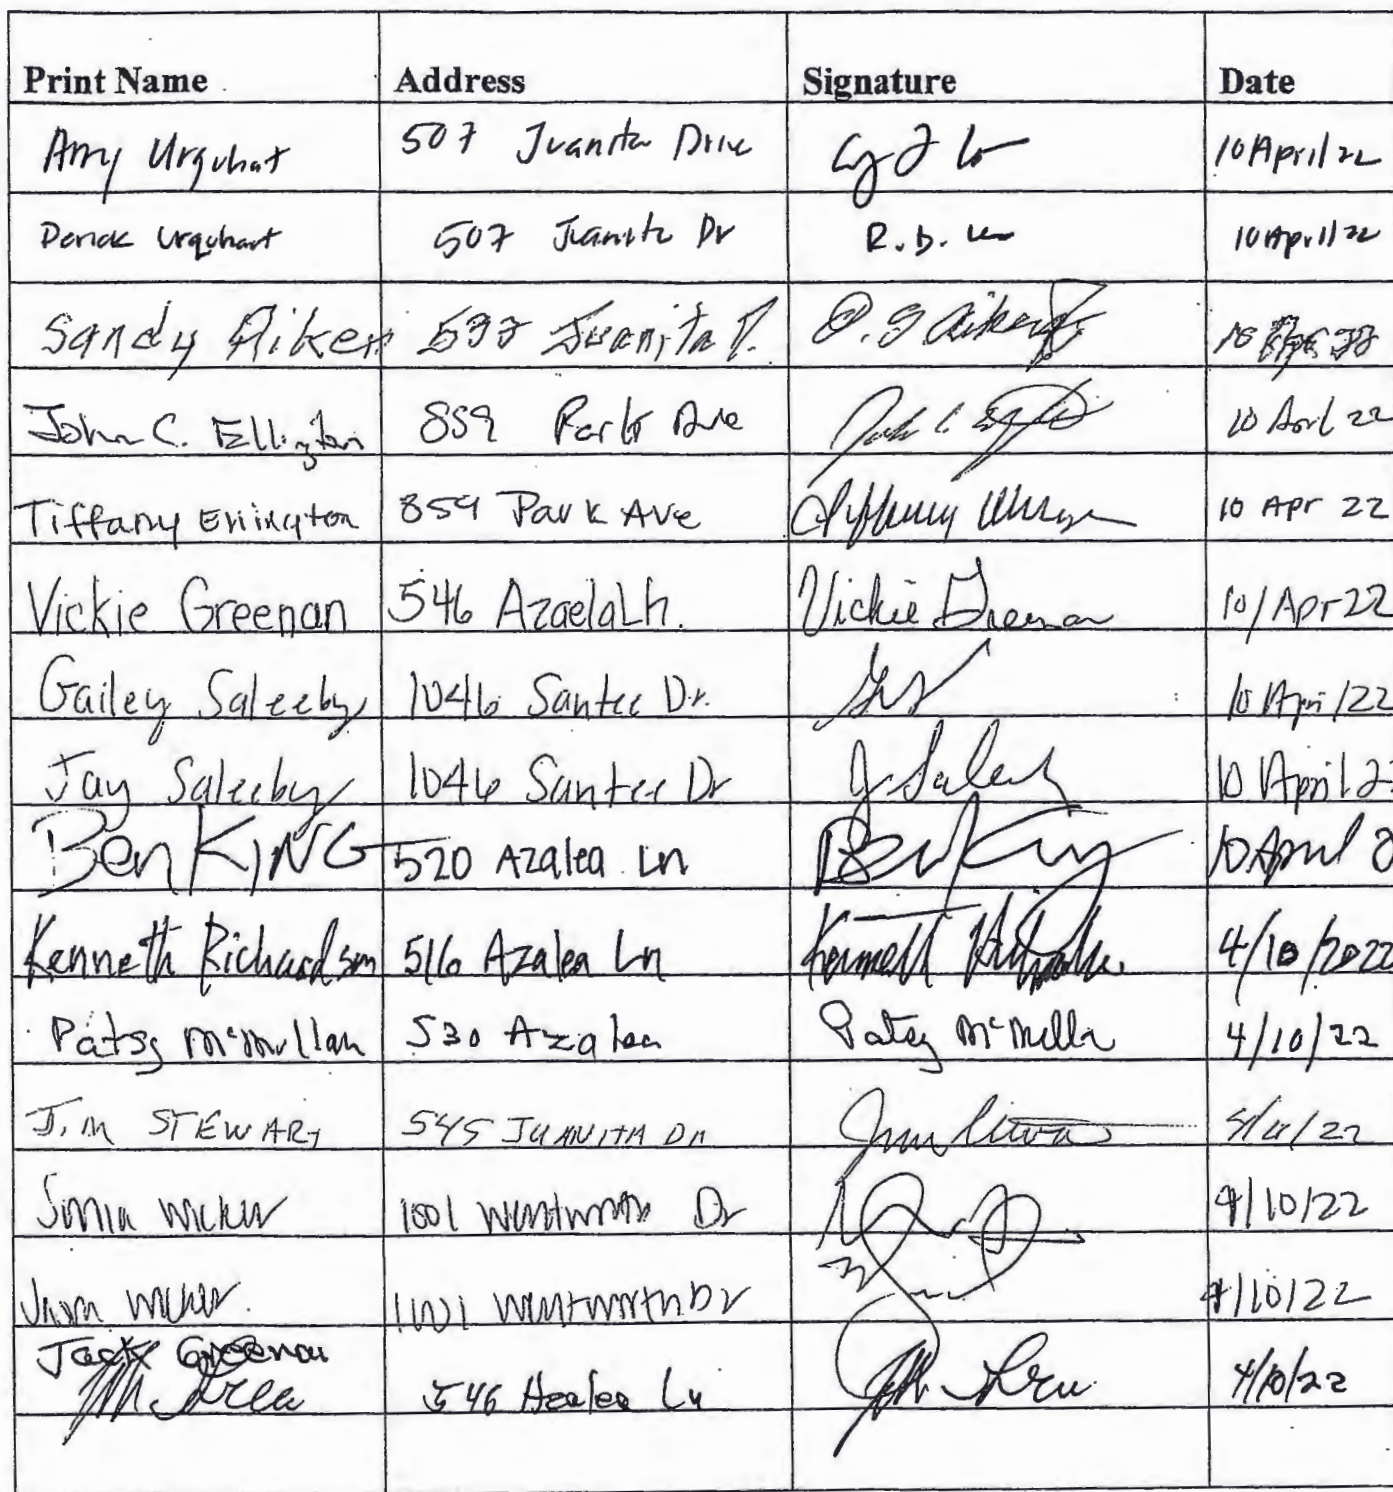 Print Name Address Signature Date
Amy Urquhart 507 Juanita Drive 10 April 22
Derick Urquhart 507 Juanita Dr R. D. 10 April 22
Sandy Aiken Juanita D. 10
John C. Ellington 859 Park Ave John C. 10 April 22
Tiffany Ellington 859 Park Ave Tiffany 10 Apr 22
Vickie Greenan 546 Azaela Ln. Vickie Greenan 10/Apr 22
Gailey Saleeby 1046 Santee Dr. 10 April 22
Jay Saleeby 1046 Santee Dr J Saleeby 10 April 2
Ben KING 520 Azalea Ln Ben King 10 April
Kenneth Richardson 516 Azalea Ln Kenneth 4/10/2022
Patsy McMillan 530 Azalea Patsy McMilla 4/10/22
Jim STEWART 545 JUANITA DR Jim /22
1001 Wentworth Dr 4/10/22
Wentworth Dr 4/10/22
Jack Greenan
546 Azalea Ln 4/10/22